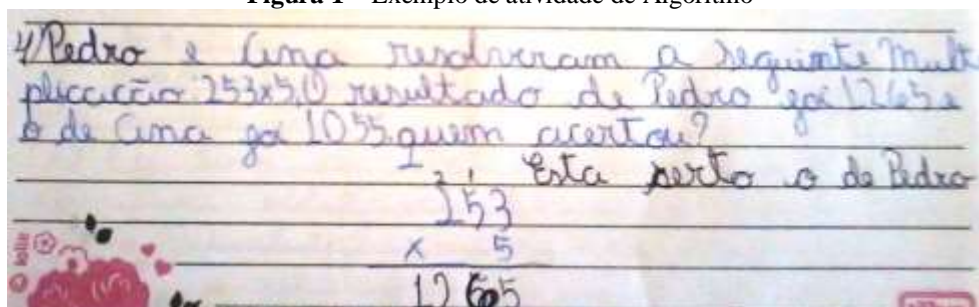 Figura 1 – Exemplo de atividade de Algoritmo
4) Pedro e Ana resolveram a seguinte Multi
plicação 253x5, O resultado de Pedro foi 1265 e
o de Ana foi 1055. quem acertou?
Esta serto o de Pedro
2 1
253
x 5
1265
lollis